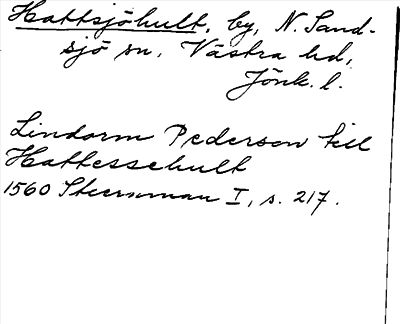 Hattsjöhult, by, N. Sand-
sjö sn, Västra hd,
Jönk. l.
Lindorm Pederson till
Hattessehult
1560 Stiernman I, s. 217.